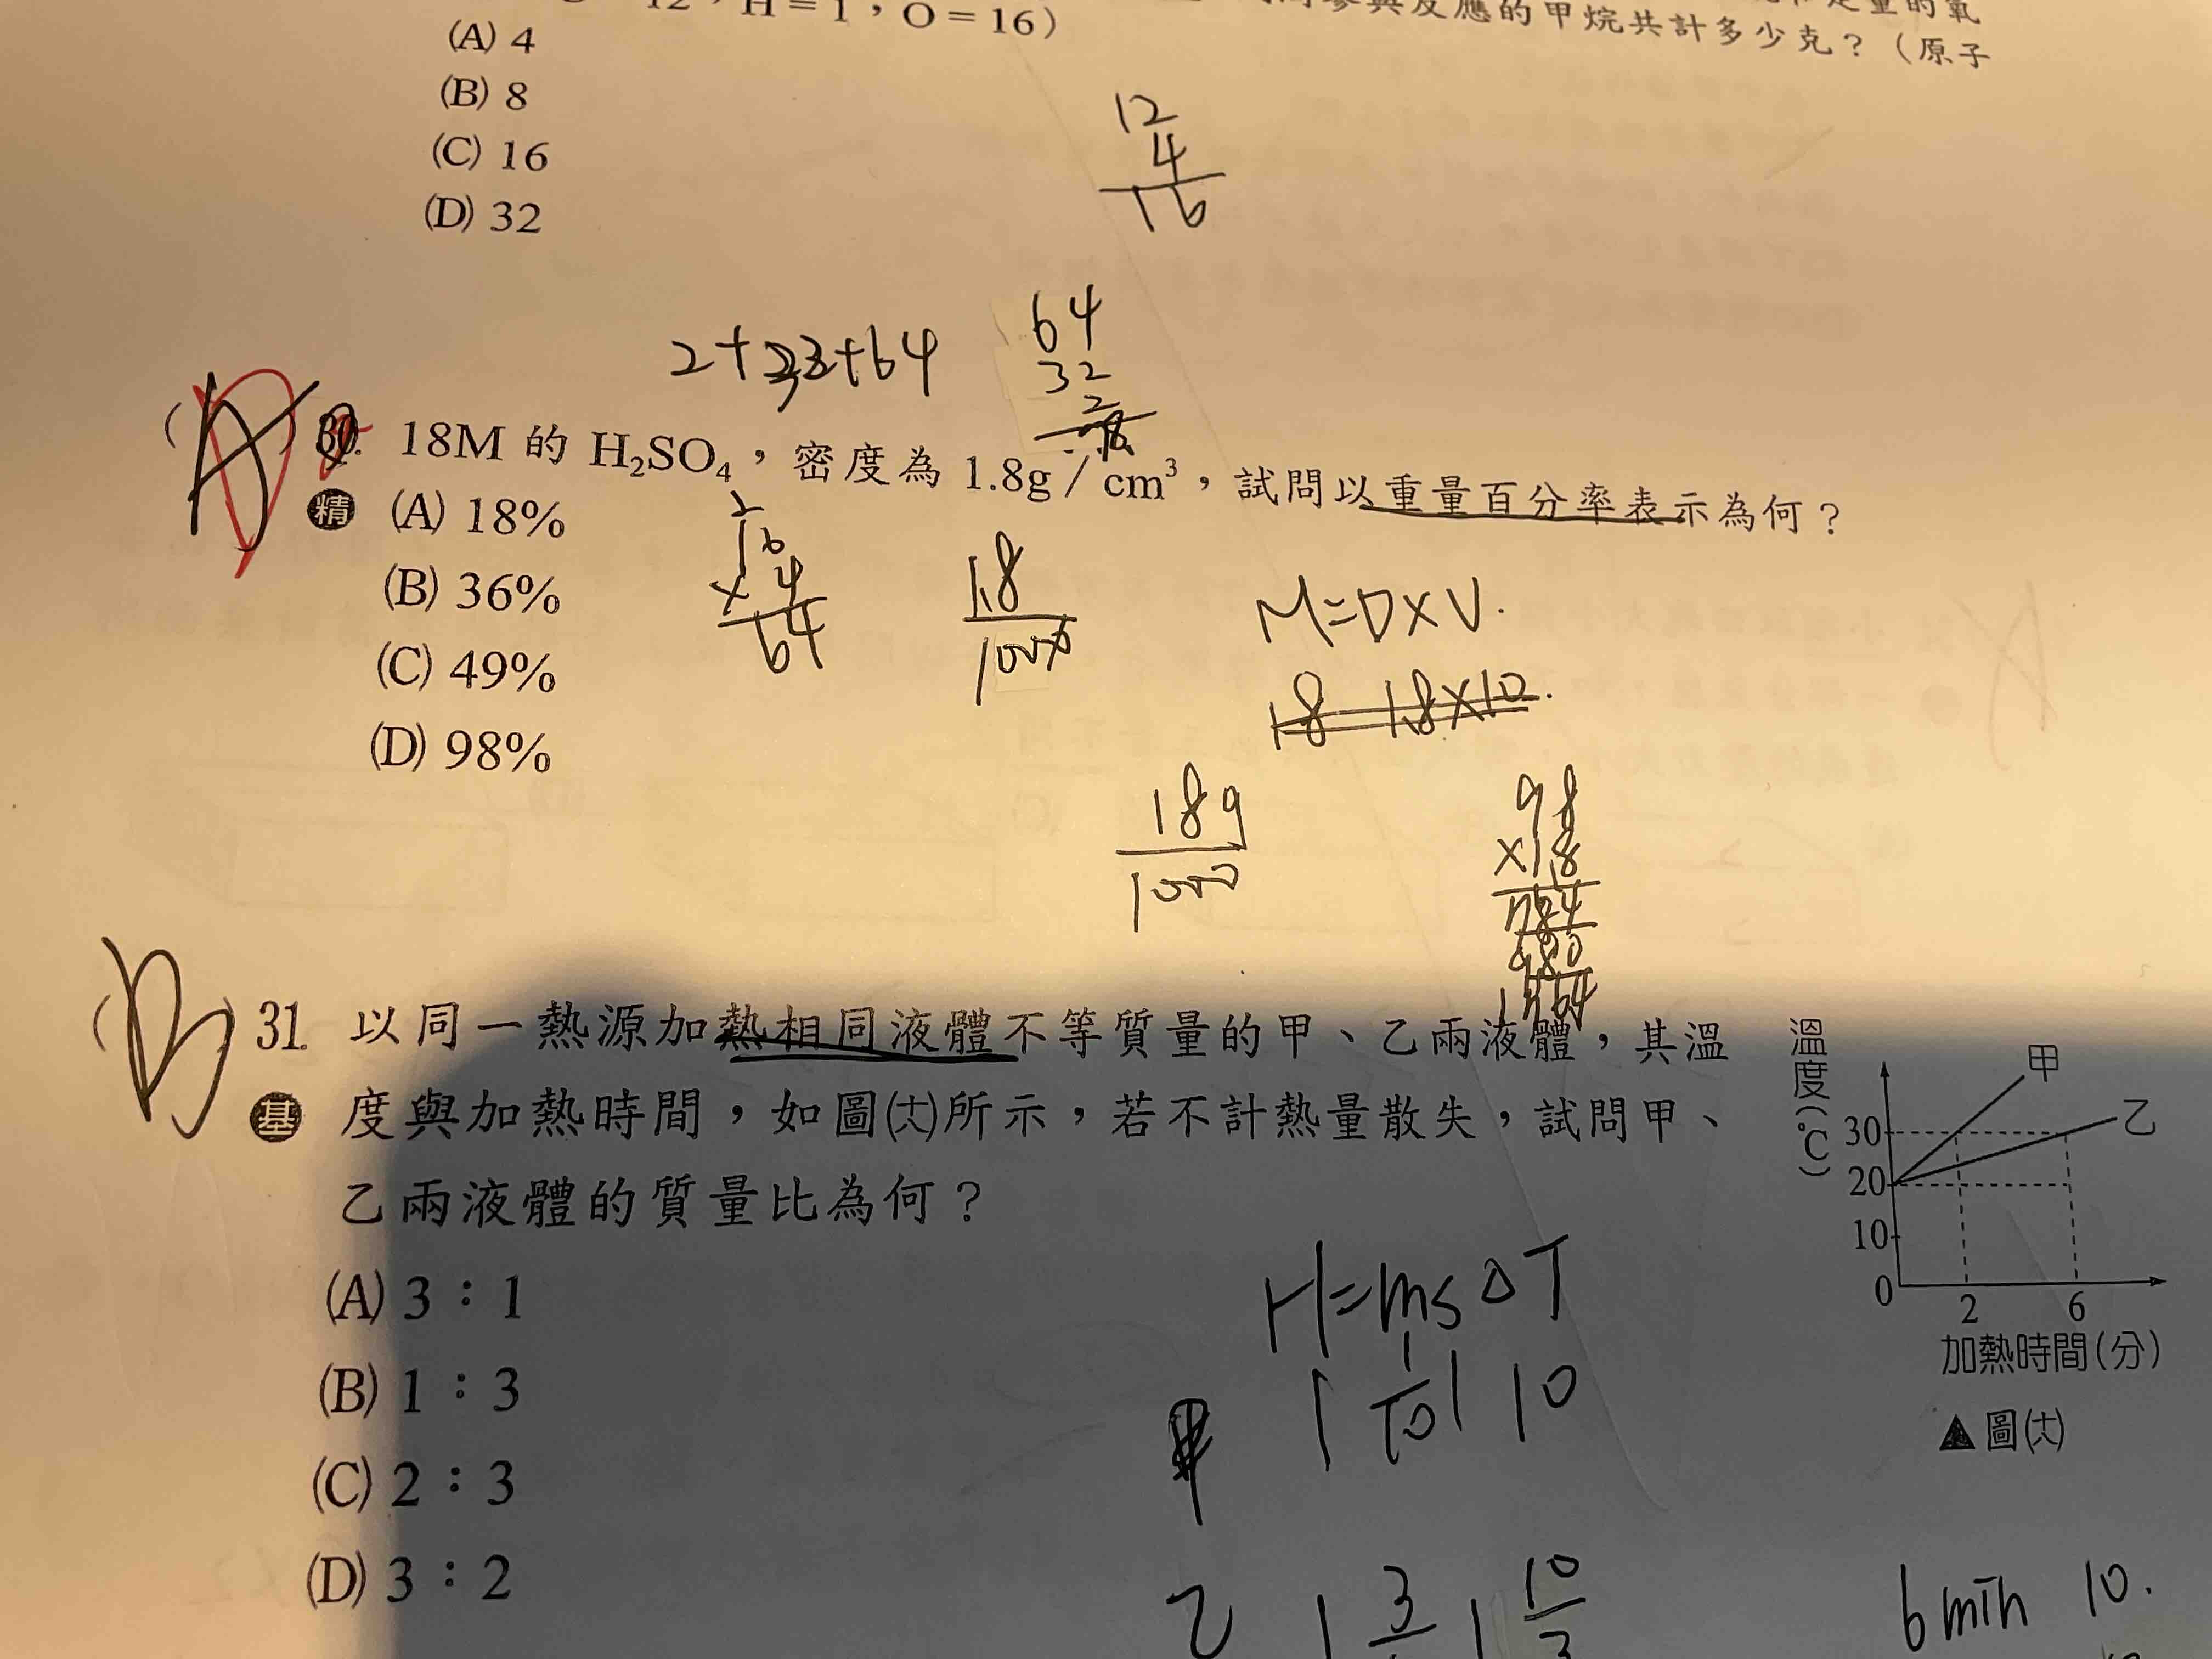 12，H＝1，O＝16）
參與反應的甲烷共計多少克？（原子
量的氧
(A) 4
(B) 8
(C) 16
(D) 32
12
4
16
2+32+64
64
32
2
(A) 30. 18M 的 H₂SO₄，密度為 1.8g／cm³，試問以重量百分率表示為何？
精
(A) 18%
(B) 36%
(C) 49%
(D) 98%
2
16
×4
64
1.8
1000
M=D×V.
18 1.8×10.
18g
1000
98
×18
784
980
1764
(B) 31. 以同一熱源加熱相同液體不等質量的甲、乙兩液體，其溫
基 度與加熱時間，如圖(六)所示，若不計熱量散失，試問甲、
乙兩液體的質量比為何？
(A) 3：1
(B) 1：3
(C) 2：3
(D) 3：2
溫度(℃)
甲
乙
30
20
10
0
2
6
加熱時間(分)
▲圖(六)
H=msΔT
甲 1 1/10 1 10
乙 1 3 1 10
3
6min 10.